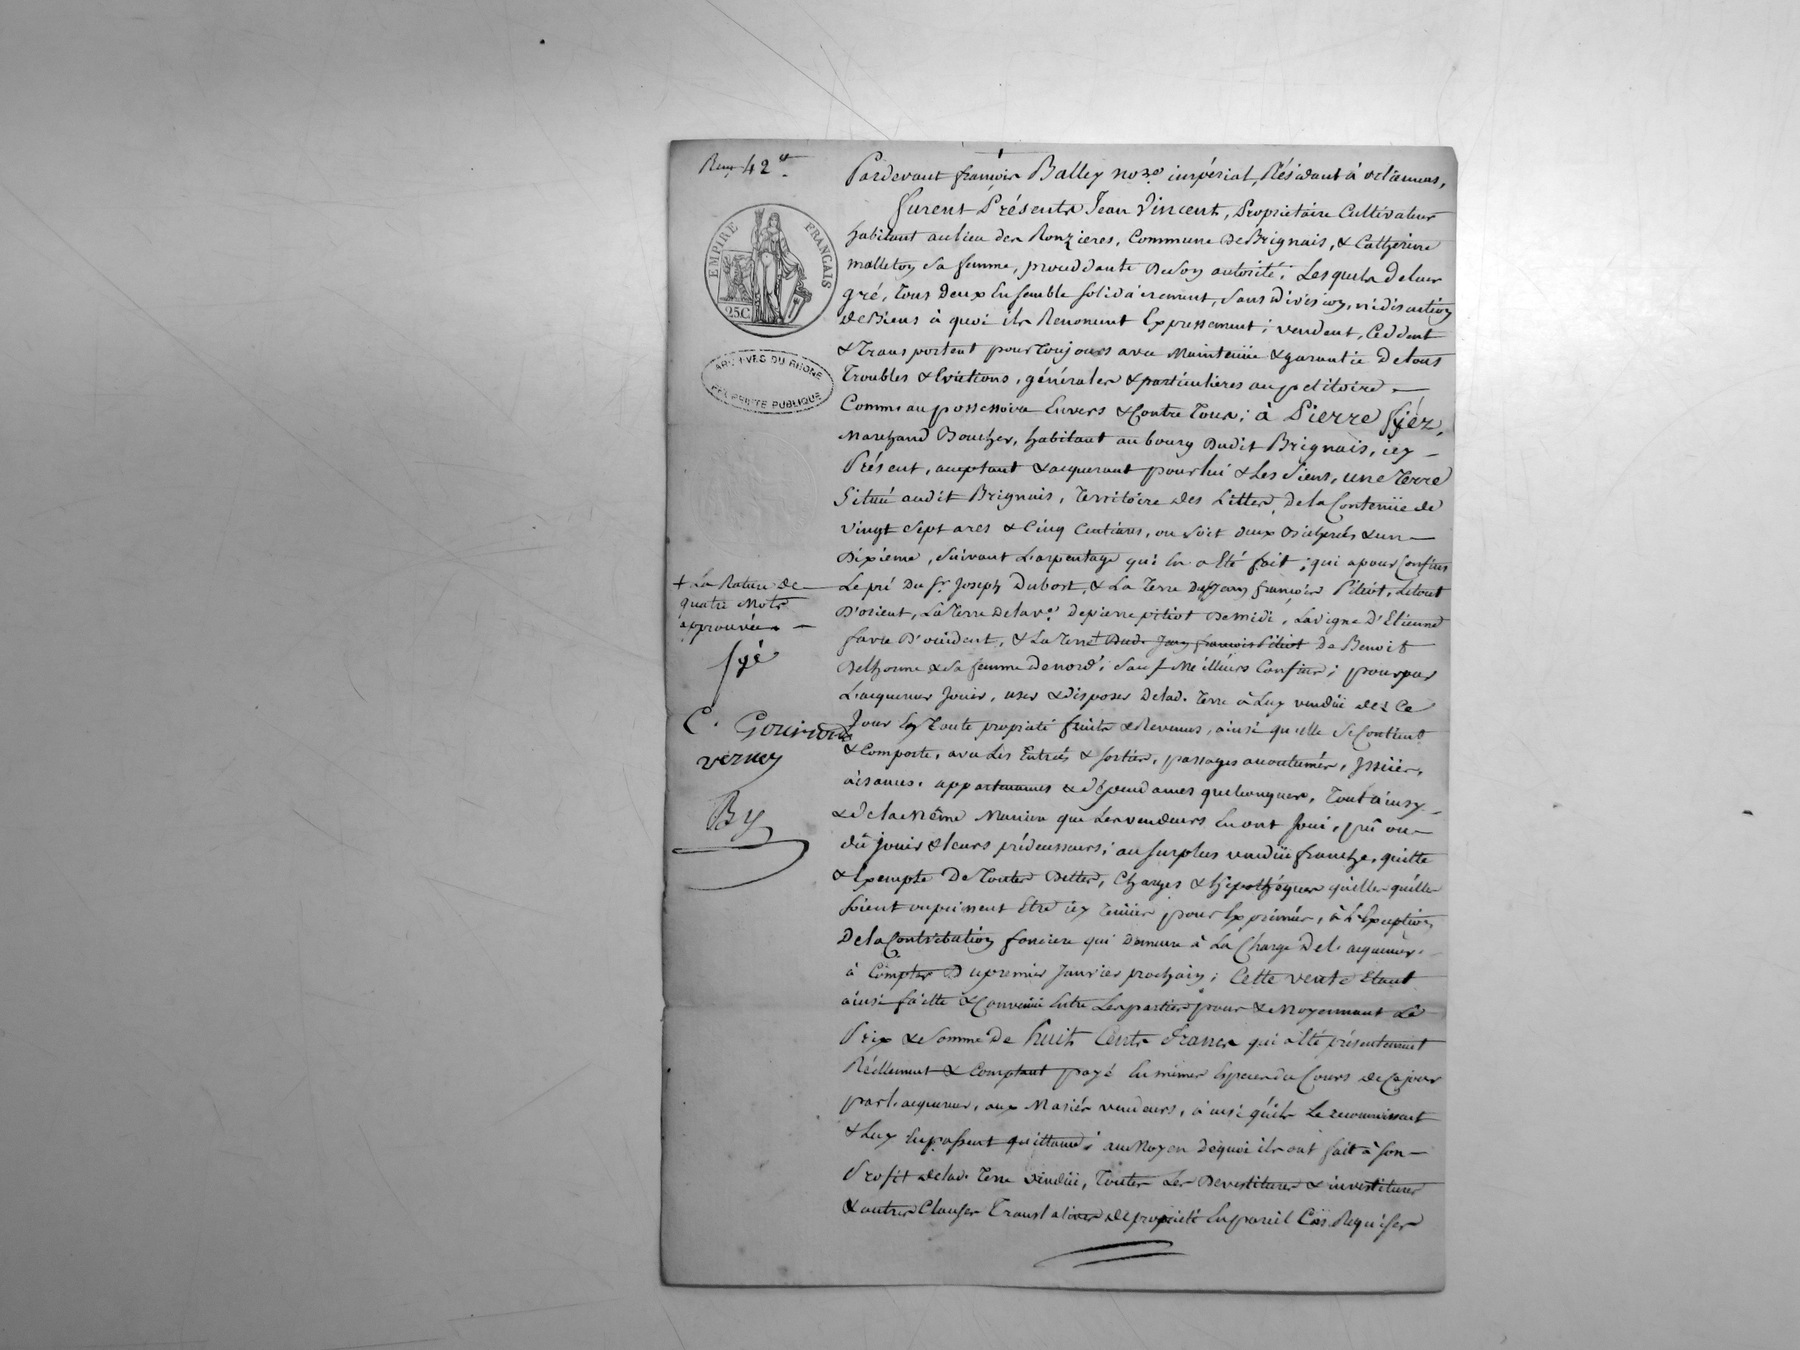 42
EMPIRE FRANÇAIS
25C
ARCHIVES DU RHONE
PROPRIÉTÉ PUBLIQUE
Pardevant françois Balley no.re impérial, Résidant à orliennas,
furent Présents Jean Vincent, Propriétaire Cultivateur
habitant au lieu des Ronzieres, Commune de Brignais, & Catherine
malleton sa femme, procédante de son autorité, Lesquels de leur
gré, tous deux Ensemble solidairement, sans division, ni discution
de Biens à quoi ils Renoncent Expressement; vendent, Ceddent
& Transportent pour toujours avec Maintenüe & garantie de tous
Troubles & Evictions, générales & particulieres au petitoire
Comme au possessoire Envers & Contre Tous; à Pierre fyéz,
Marchand Boucher, habitant au bourg Dudit Brignais, icy
Présent, acceptant & acquerant pour lui & Les Siens, une Terre
Située audit Brignais, Territoire des Littes, de la Contenüe de
vingt sept ares & Cinq Centiares, ou soit deux Bicherés & un
Dixieme, suivant L'arpentage qui En a Eté fait; qui a pour Confins
Le pré du Sr. Joseph Dubost, & La Terre de Jean françois Pitiot, Le tout
D'orient, La Terre de la ve. de pierre pitiot de midi, La vigne d'Etienne
favre D'occident, & La Terre + Dud. Jean francois Pitiot de Benoit
Delhorme & sa femme de nord; sauf Meilleurs Confins; pour par
L'acquereur Jouir, user & disposer de lad. Terre à Luy vendüe des Ce
Jour En Toute propriété fruits & Revenus, ainsi qu'elle se Contient
& Comporte, avec Les Entrées & sorties, passages accoutumés, Issües,
aisances, appartenances & dépendances quelconques, Tout ainsy
& de la Même Maniere que Les vendeurs En ont Joui, pû ou
dû jouir & leurs prédecesseurs; au surplus vendüe franche, quitte
& Exempte De Toutes Dettes, Charges & hipothéques quelles qu'elles
soient ou puissent Etre icy Tenües pour Exprimées, à L'Exception
De la Contribution fonciere qui demeure à La Charge de l'acquereur
à Compter Du premier Janvier prochain; Cette vente Etant
ainsi faitte & Convenüe Entre Les parties pour & Moyennant Le
Prix & Somme de huit Cents francs qui a Eté présentement
Réellement & Comptant payé En mêmes Especes du Cours de Ce jour
par L'acquereur, aux Mariés vendeurs, ainsi qu'ils Le reconnoissent
& Luy En passent quittance; au Moyen de quoi ils ont fait à son
Profit de lad. Terre vendüe, Toutes Les Devestitures & investitures
& autres Clauses Translatives de propriété En pareil Cas Requises
+ La Rature de
quatre Mots
approuvée
fyé
C. Gouirand
verney
By